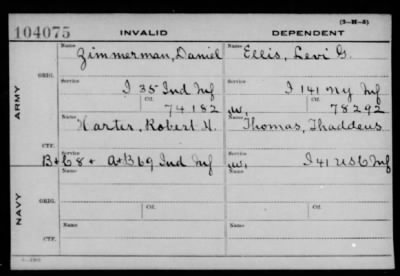 (3-H-5)
104075 INVALID DEPENDENT
Name Name
Zimmerman, Daniel Ellis, Levi G.
ORIG.
Service Service
I 35 Ind Inf I 141 NY Inf
Ctf. Ctf.
74182 W. 78292
ARMY
Name Name
Harter, Robert H. Thomas, Thaddeus
Service Service
CTF. B+G 8 + A+B 69 Ind Inf W. I 41 US C Inf
Name Name
ORIG.
Service Ctf. Service Ctf.
NAVY
Name Name
CTF.